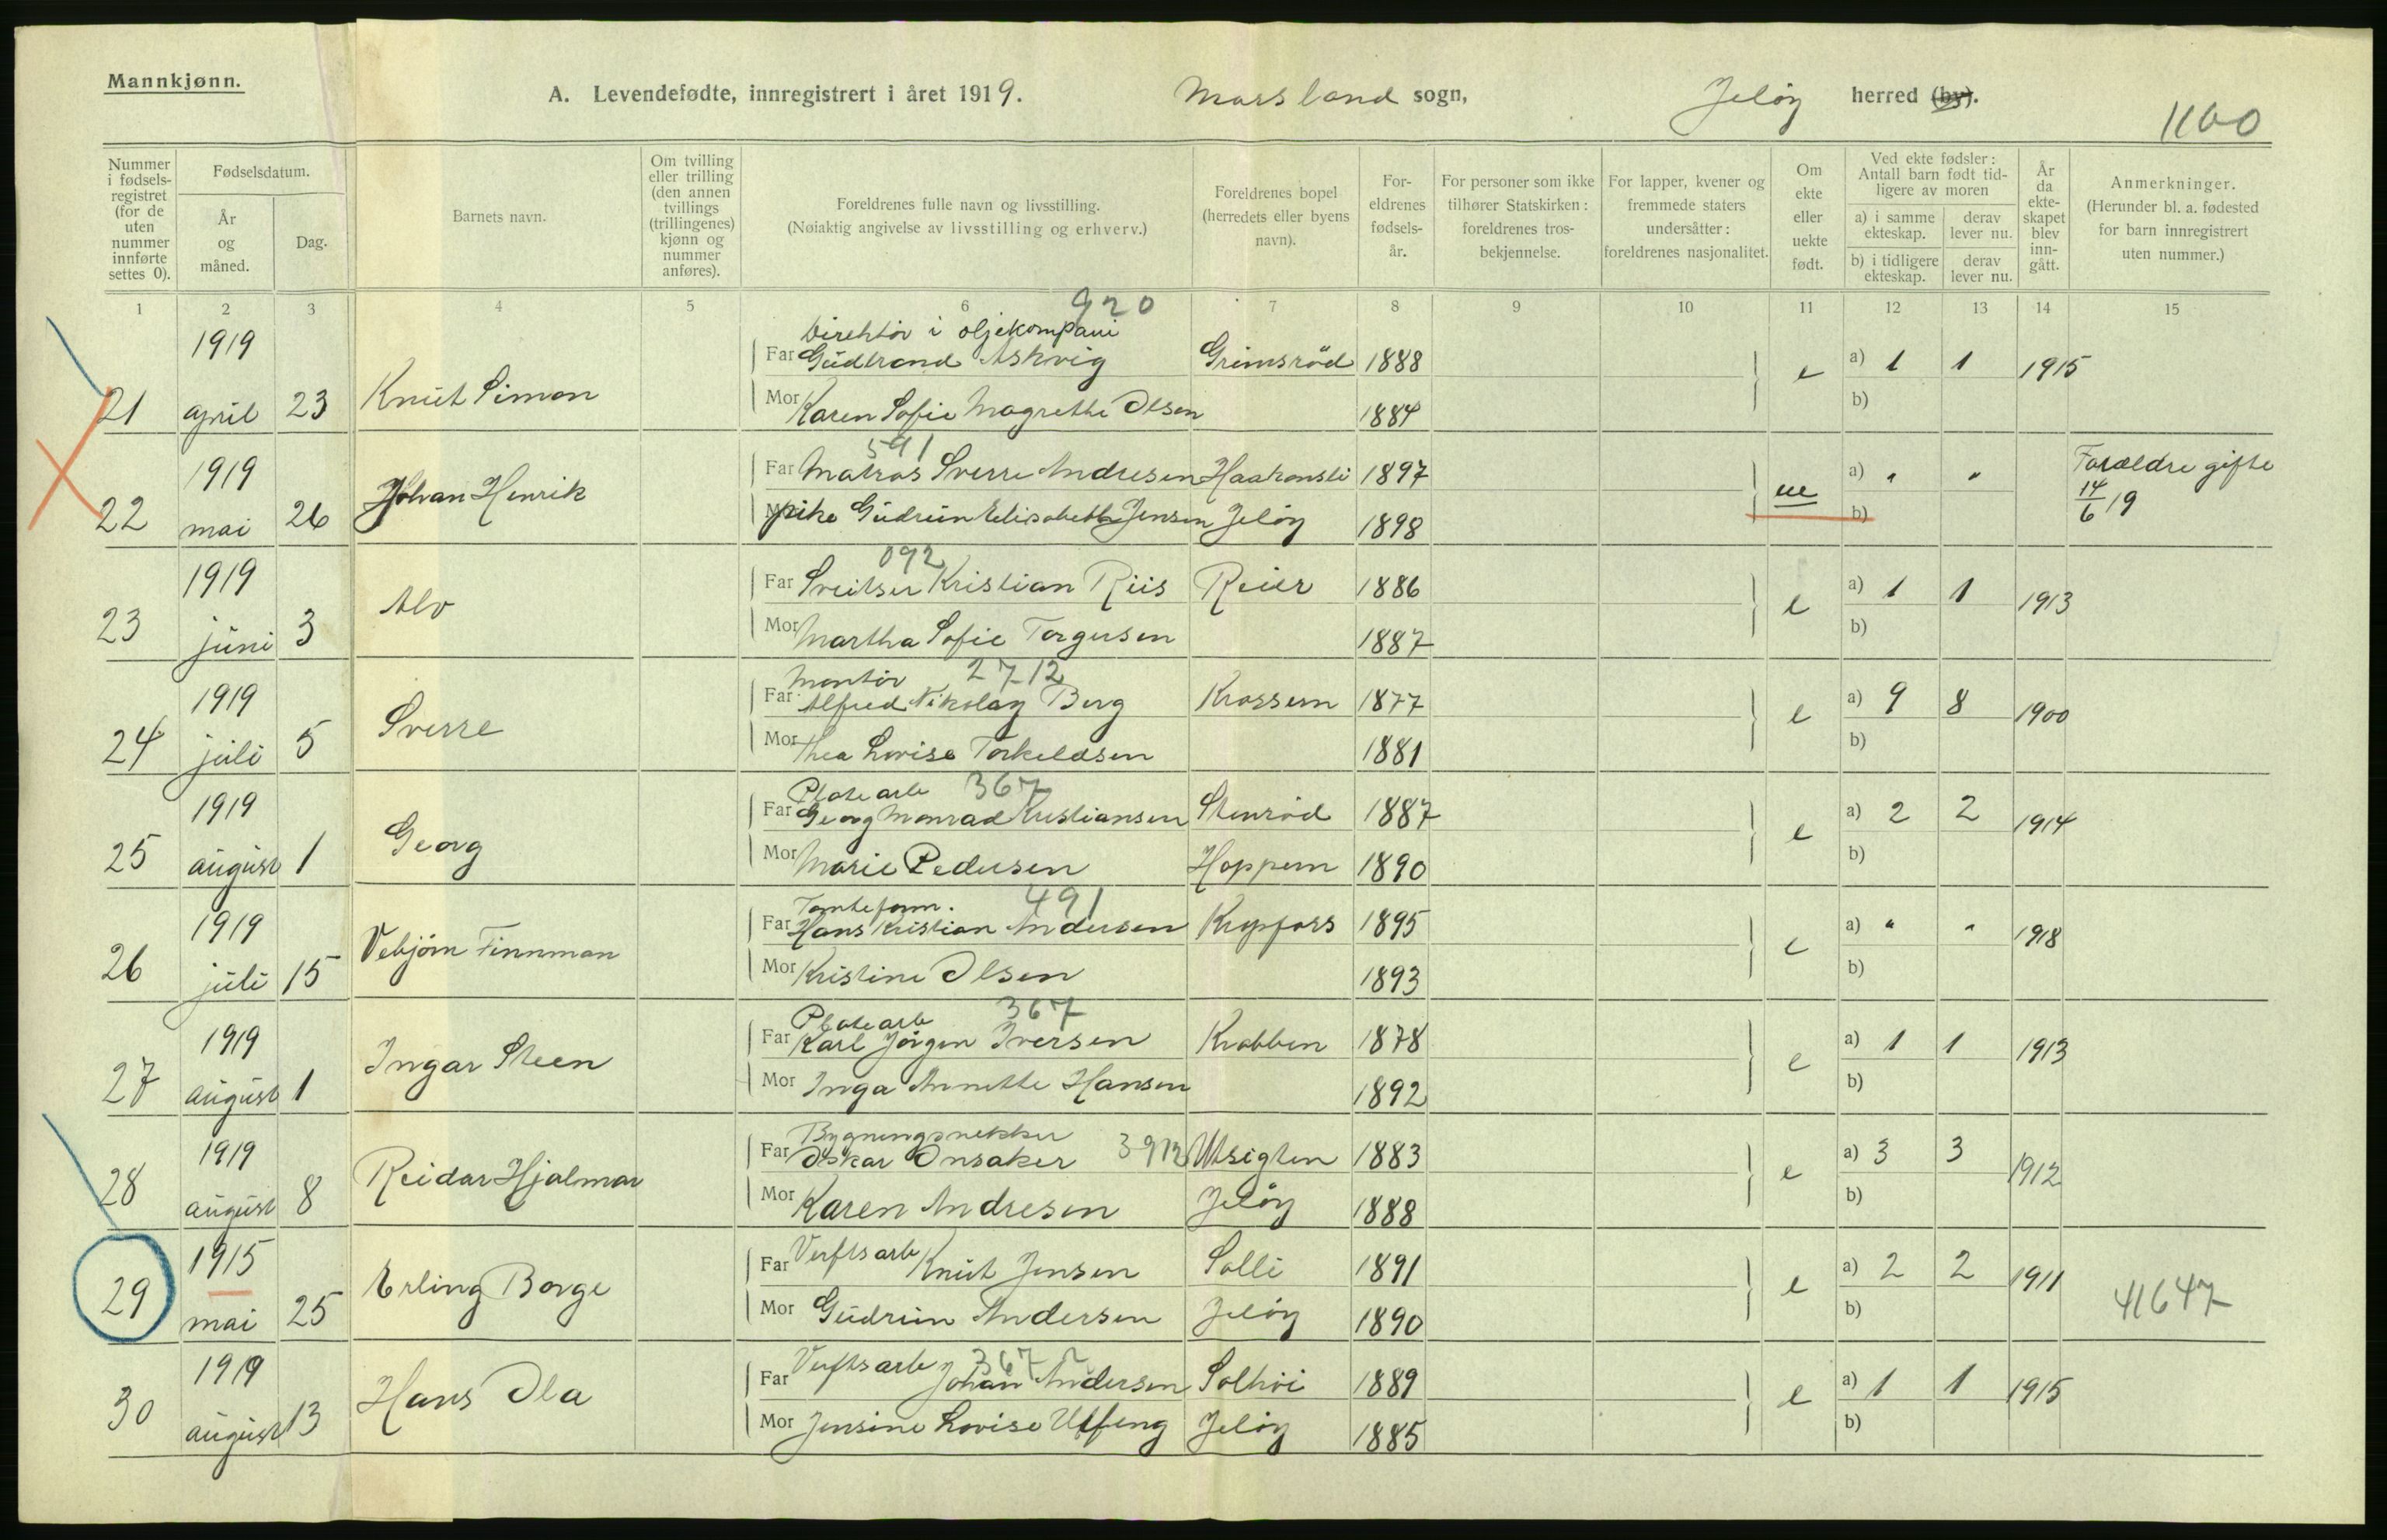 Mannkjønn.
A. Levendefødte, innregistrert i året 1919. Mossland sogn, Jeløy herred (by).
1100
Nummer i fødsels-registret (for de uten nummer innførte settes 0).
Fødselsdatum.
År og måned.
Dag.
Barnets navn.
Om tvilling eller trilling (den annen tvillings (trillingenes) kjønn og nummer anføres).
Foreldrenes fulle navn og livsstilling.
(Nøiaktig angivelse av livsstilling og erhverv.)
Foreldrenes bopel (herredets eller byens navn).
For-eldrenes fødsels-år.
For personer som ikke tilhører Statskirken: foreldrenes tros-bekjennelse.
For lapper, kvener og fremmede staters undersåtter: foreldrenes nasjonalitet.
Om ekte eller uekte født.
Ved ekte fødsler: Antall barn født tid-ligere av moren
a) i samme ekteskap.
derav lever nu.
b) i tidligere ekteskap.
derav lever nu.
År da ekte-skapet blev inn-gått.
Anmerkninger.
(Herunder bl. a. fødested for barn innregistrert uten nummer.)
1 2 3 4 5 6 7 8 9 10 11 12 13 14 15
920
Direktør i oljekompani
1919 Far Gudbrand Askvig Grimsrød 1888 a) 1 1 1915
21 april 23 Knut Simon e
Mor Karen Sofie Magrethe Olsen 1884 b)
591
1919 Far Matros Sverre Andresen Haakonsli 1897 a) " " Forældre gifte
22 mai 26 Johan Henrik ue 14/6 19
Mor Pike Gudrun Elisabeth Jensen Jeløy 1898 b)
092
1919 Far Sveitser Kristian Riis Reier 1886 a) 1 1 1913
23 juni 3 Alv e
Mor Martha Sofie Torgersen 1887 b)
Montør 2712
1919 Far Alfred Nikolay Berg Krossern 1877 a) 9 8 1900
24 juli 5 Sverre e
Mor Thea Lovise Torkeldsen 1881 b)
Platearb 367
1919 Far Georg Monrad Kristiansen Stenrød 1887 a) 2 2 1914
25 august 1 Georg e
Mor Marie Pedersen Hoppern 1890 b)
Tomteform. 491
1919 Far Hans Kristian Andersen Krypfors 1895 a) " " 1918
26 juli 15 Vebjörn Finnman e
Mor Kristine Olsen 1893 b)
Platearb 367
1919 Far Karl Jörgen Iversen Krabben 1878 a) 1 1 1913
27 august 1 Ingar Steen e
Mor Inga Annette Hansen 1892 b)
Bygningssnekker
1919 Far Oskar Onsaker 3912 Utsigten 1883 a) 3 3 1912
28 august 8 Reidar Hjalmar e
Mor Karen Andresen Jeløy 1888 b)
1915 Far Verftsarb Knut Jensen Solli 1891 a) 2 2 1911
29 mai 25 Erling Borge e 41647
Mor Gudrun Andersen Jeløy 1890 b)
367
1919 Far Verftsarb Johan Andersen Solhøi 1889 a) 1 1 1915
30 august 13 Hans Ola e
Mor Jensine Lovise Ulfeng Jeløy 1885 b)